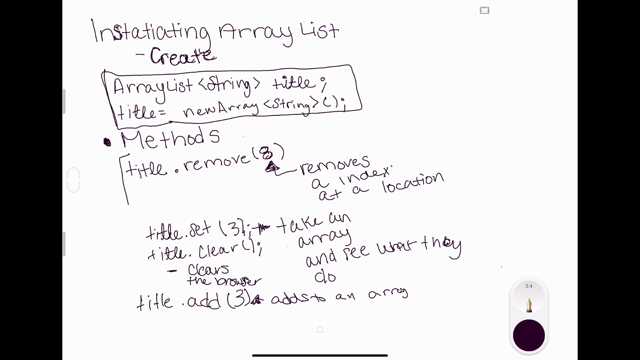 Instatiating Array List
- Create
ArrayList <String> title;
title= newArray <String>();
• Methods
title.remove(8)
removes
a index
at a location
title.set (3);
take an
array
and see what they
do
title.clear();
- clears
the browser
title.add(3) adds to an array
2.4